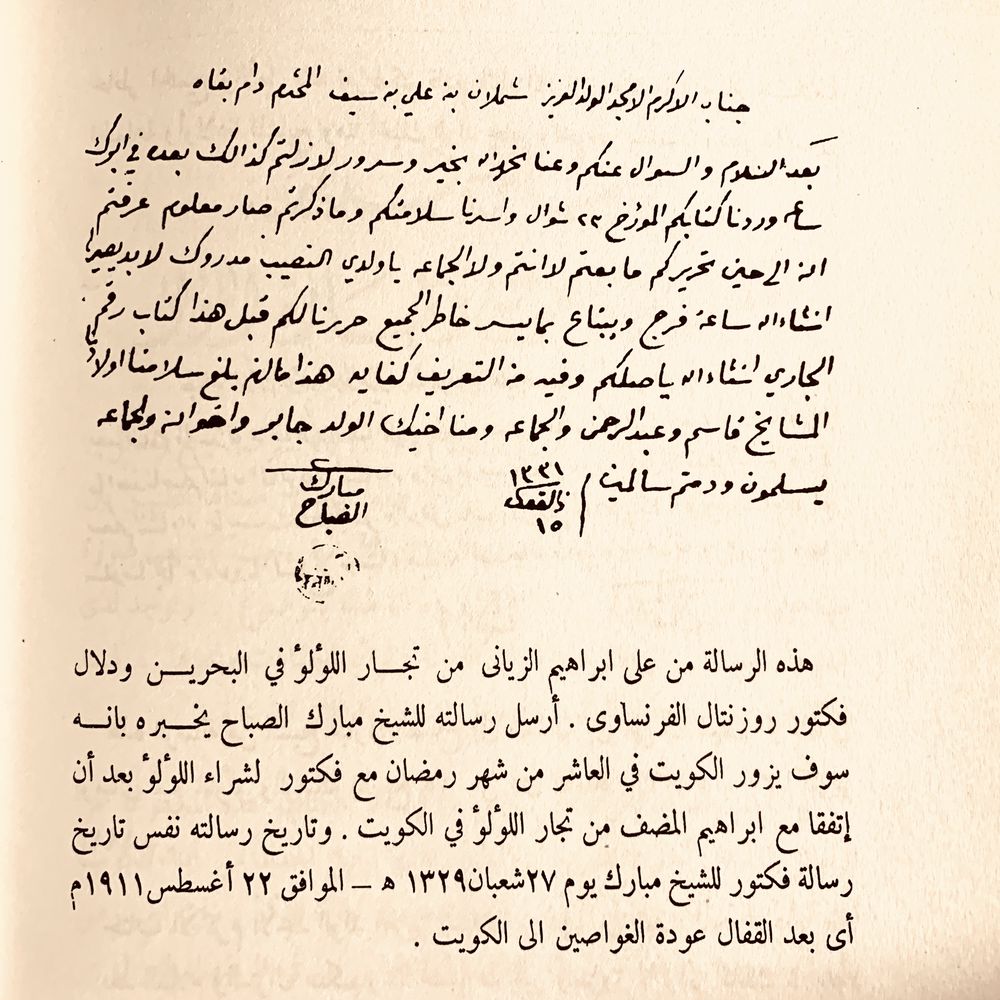 جناب الاكرم الامجد الولد العزيز شملان بن علي بن سيف المحترم دام بقاه
بعد السلام والسوال عنكم وعنا نحمد الله بخير وسرور لازلتم كذالك بعده في ابرك
ساعه وردنا كتابكم المؤرخ ٢٣ شوال واسرنا سلامتكم وماذكرتم صار معلوم عرفتم
انه الى حين تحريركم مابعتم لا انتم ولا الجماعه ياولدي النصيب مدروك لابد يصير
انشاء الله ساعة فرج ويبتاع بمايسر خاطر الجميع حررنا لكم قبل هذا كتاب رقم
الجاري انشاء الله ياصلكم وفيه من التعريف كفايه هذا مالزم بلغ سلامنا اولاد
المشايخ قاسم وعبدالرحمن والجماعه ومنا اخيك الولد جابر واخوانه والجماعه
يسلمون ودمتم سالمين
١٣٣١
ذالقعده
١٥
مبارك
الصباح
هذه الرسالة من على ابراهيم الزيانى من تجار اللؤلؤ في البحرين ودلال
فكتور روزنتال الفرنساوى . أرسل رسالته للشيخ مبارك الصباح يخبره بانه
سوف يزور الكويت في العاشر من شهر رمضان مع فكتور لشراء اللؤلؤ بعد أن
إتفقا مع ابراهيم المضف من تجار اللؤلؤ في الكويت . وتاريخ رسالته نفس تاريخ
رسالة فكتور للشيخ مبارك يوم ٢٧شعبان١٣٢٩ ه – الموافق ٢٢ أغسطس١٩١١م
أى بعد القفال عودة الغواصين الى الكويت .